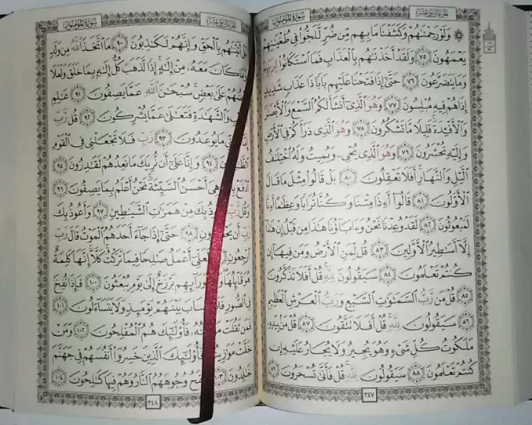 سُورَةُ المُؤۡمِنُونَ
۞ وَلَوۡ رَحِمۡنَٰهُمۡ وَكَشَفۡنَا مَا بِهِم مِّن ضُرّٖ لَّلَجُّواْ فِي طُغۡيَٰنِهِمۡ
يَعۡمَهُونَ ٧٥ وَلَقَدۡ أَخَذۡنَٰهُم بِٱلۡعَذَابِ فَمَا ٱسۡتَكَانُواْ لِرَبِّهِمۡ
وَمَا يَتَضَرَّعُونَ ٧٦ حَتَّىٰٓ إِذَا فَتَحۡنَا عَلَيۡهِم بَابٗا ذَا عَذَابٖ شَدِيدٍ
إِذَا هُمۡ فِيهِ مُبۡلِسُونَ ٧٧ وَهُوَ ٱلَّذِيٓ أَنشَأَ لَكُمُ ٱلسَّمۡعَ وَٱلۡأَبۡصَٰرَ
وَٱلۡأَفۡـِٔدَةَۚ قَلِيلٗا مَّا تَشۡكُرُونَ ٧٨ وَهُوَ ٱلَّذِي ذَرَأَكُمۡ فِي ٱلۡأَرۡضِ
وَإِلَيۡهِ تُحۡشَرُونَ ٧٩ وَهُوَ ٱلَّذِي يُحۡيِۦ وَيُمِيتُ وَلَهُ ٱخۡتِلَٰفُ
ٱلَّيۡلِ وَٱلنَّهَارِۚ أَفَلَا تَعۡقِلُونَ ٨٠ بَلۡ قَالُواْ مِثۡلَ مَا قَالَ
ٱلۡأَوَّلُونَ ٨١ قَالُوٓاْ أَءِذَا مِتۡنَا وَكُنَّا تُرَابٗا وَعِظَٰمًا أَءِنَّا
لَمَبۡعُوثُونَ ٨٢ لَقَدۡ وُعِدۡنَا نَحۡنُ وَءَابَآؤُنَا هَٰذَا مِن قَبۡلُ إِنۡ هَٰذَآ
إِلَّآ أَسَٰطِيرُ ٱلۡأَوَّلِينَ ٨٣ قُل لِّمَنِ ٱلۡأَرۡضُ وَمَن فِيهَآ إِن
كُنتُمۡ تَعۡلَمُونَ ٨٤ سَيَقُولُونَ لِلَّهِۚ قُلۡ أَفَلَا تَذَكَّرُونَ
٨٥ قُلۡ مَن رَّبُّ ٱلسَّمَٰوَٰتِ ٱلسَّبۡعِ وَرَبُّ ٱلۡعَرۡشِ ٱلۡعَظِيمِ
٨٦ سَيَقُولُونَ لِلَّهِۚ قُلۡ أَفَلَا تَتَّقُونَ ٨٧ قُلۡ مَنۢ بِيَدِهِۦ
مَلَكُوتُ كُلِّ شَيۡءٖ وَهُوَ يُجِيرُ وَلَا يُجَارُ عَلَيۡهِ إِن
كُنتُمۡ تَعۡلَمُونَ ٨٨ سَيَقُولُونَ لِلَّهِۚ قُلۡ فَأَنَّىٰ تُسۡحَرُونَ ٨٩
٣٤٧
سُورَةُ المُؤۡمِنُونَ
بَلۡ أَتَيۡنَٰهُم بِٱلۡحَقِّ وَإِنَّهُمۡ لَكَٰذِبُونَ ٩٠ مَا ٱتَّخَذَ ٱللَّهُ مِن وَلَدٖ
وَمَا كَانَ مَعَهُۥ مِنۡ إِلَٰهٍۚ إِذٗا لَّذَهَبَ كُلُّ إِلَٰهِۭ بِمَا خَلَقَ وَلَعَلَا
بَعۡضُهُمۡ عَلَىٰ بَعۡضٖۚ سُبۡحَٰنَ ٱللَّهِ عَمَّا يَصِفُونَ ٩١ عَٰلِمِ
ٱلۡغَيۡبِ وَٱلشَّهَٰدَةِ فَتَعَٰلَىٰ عَمَّا يُشۡرِكُونَ ٩٢ قُل رَّبِّ
مَا يُوعَدُونَ ٩٣ رَبِّ فَلَا تَجۡعَلۡنِي فِي ٱلۡقَوۡمِ
٩٤ وَإِنَّا عَلَىٰٓ أَن نُّرِيَكَ مَا نَعِدُهُمۡ لَقَٰدِرُونَ ٩٥
ٱدۡفَعۡ بِٱلَّتِي هِيَ أَحۡسَنُ ٱلسَّيِّئَةَۚ نَحۡنُ أَعۡلَمُ بِمَا يَصِفُونَ ٩٦
وَقُل رَّبِّ بِكَ مِنۡ هَمَزَٰتِ ٱلشَّيَٰطِينِ ٩٧ وَأَعُوذُ بِكَ
رَبِّ أَن ٩٨ حَتَّىٰٓ إِذَا جَآءَ أَحَدَهُمُ ٱلۡمَوۡتُ قَالَ رَبِّ
ٱرۡجِعُونِ لَعَلِّيٓ أَعۡمَلُ صَٰلِحٗا فِيمَا تَرَكۡتُۚ كَلَّآۚ إِنَّهَا كَلِمَةٌ
هُوَ قَآئِلُهَاۖ بَرۡزَخٌ إِلَىٰ يَوۡمِ يُبۡعَثُونَ ١٠٠ فَإِذَا نُفِخَ
فِي ٱلصُّورِ أَنسَابَ بَيۡنَهُمۡ يَوۡمَئِذٖ وَلَا يَتَسَآءَلُونَ ١٠١
فَمَن ثَقُلَتۡ فَأُوْلَٰٓئِكَ هُمُ ٱلۡمُفۡلِحُونَ ١٠٢ وَمَنۡ
خَفَّتۡ مَوَٰزِينُهُۥ فَأُوْلَٰٓئِكَ ٱلَّذِينَ خَسِرُوٓاْ أَنفُسَهُمۡ فِي جَهَنَّمَ
خَٰلِدُونَ وُجُوهَهُمُ ٱلنَّارُ وَهُمۡ فِيهَا كَٰلِحُونَ ١٠٤
٣٤٨